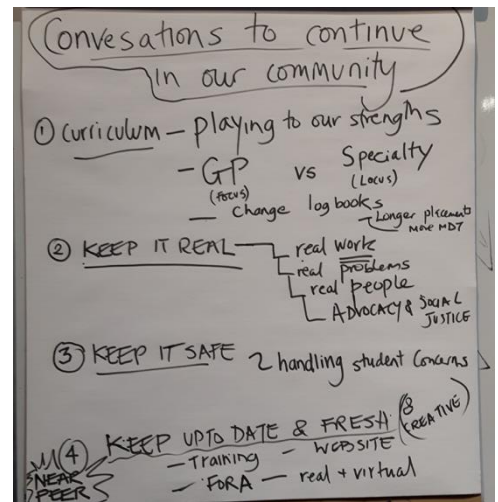 Convesations to continue
in our community
① Curriculum – playing to our strengths
– GP vs Specialty
(focus) (Locus)
— change logbooks
– Longer placements
More MDT
② KEEP IT REAL – real work
– real problems
– real people
– ADVOCACY & SOCIAL
JUSTICE
③ KEEP IT SAFE 2 handling student concerns
④ KEEP UPTO DATE & FRESH (& CREATIVE)
NEAR
PEER
– Training – WEBSITE
– FORA – real + virtual